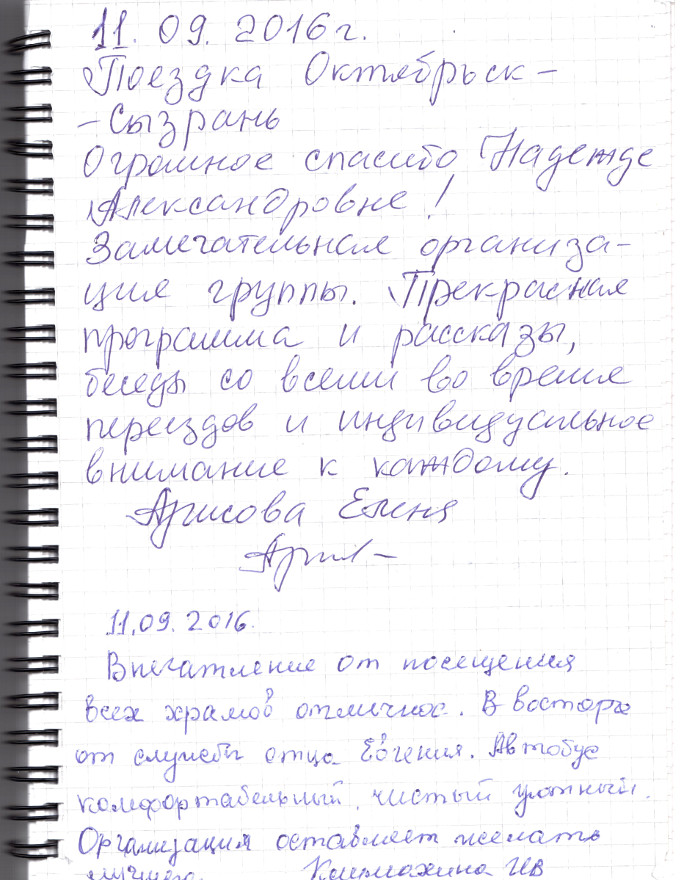 11. 09. 2016г.
Поездка Октябрьск -
- Сызрань
Огромное спасибо Надежде
Александровне!
Замечательная организа-
ция группы. Прекрасная
программа и рассказы,
беседы со всеми во время
переездов и индивидуальное
внимание к каждому.
Арисова Елена
11.09.2016.
Впечатление от посещения
всех храмов отличное. В восторге
от службы отца Евгения. Автобус
комфортабельный, чистый уютный.
Организация оставляет желать
лучшего.